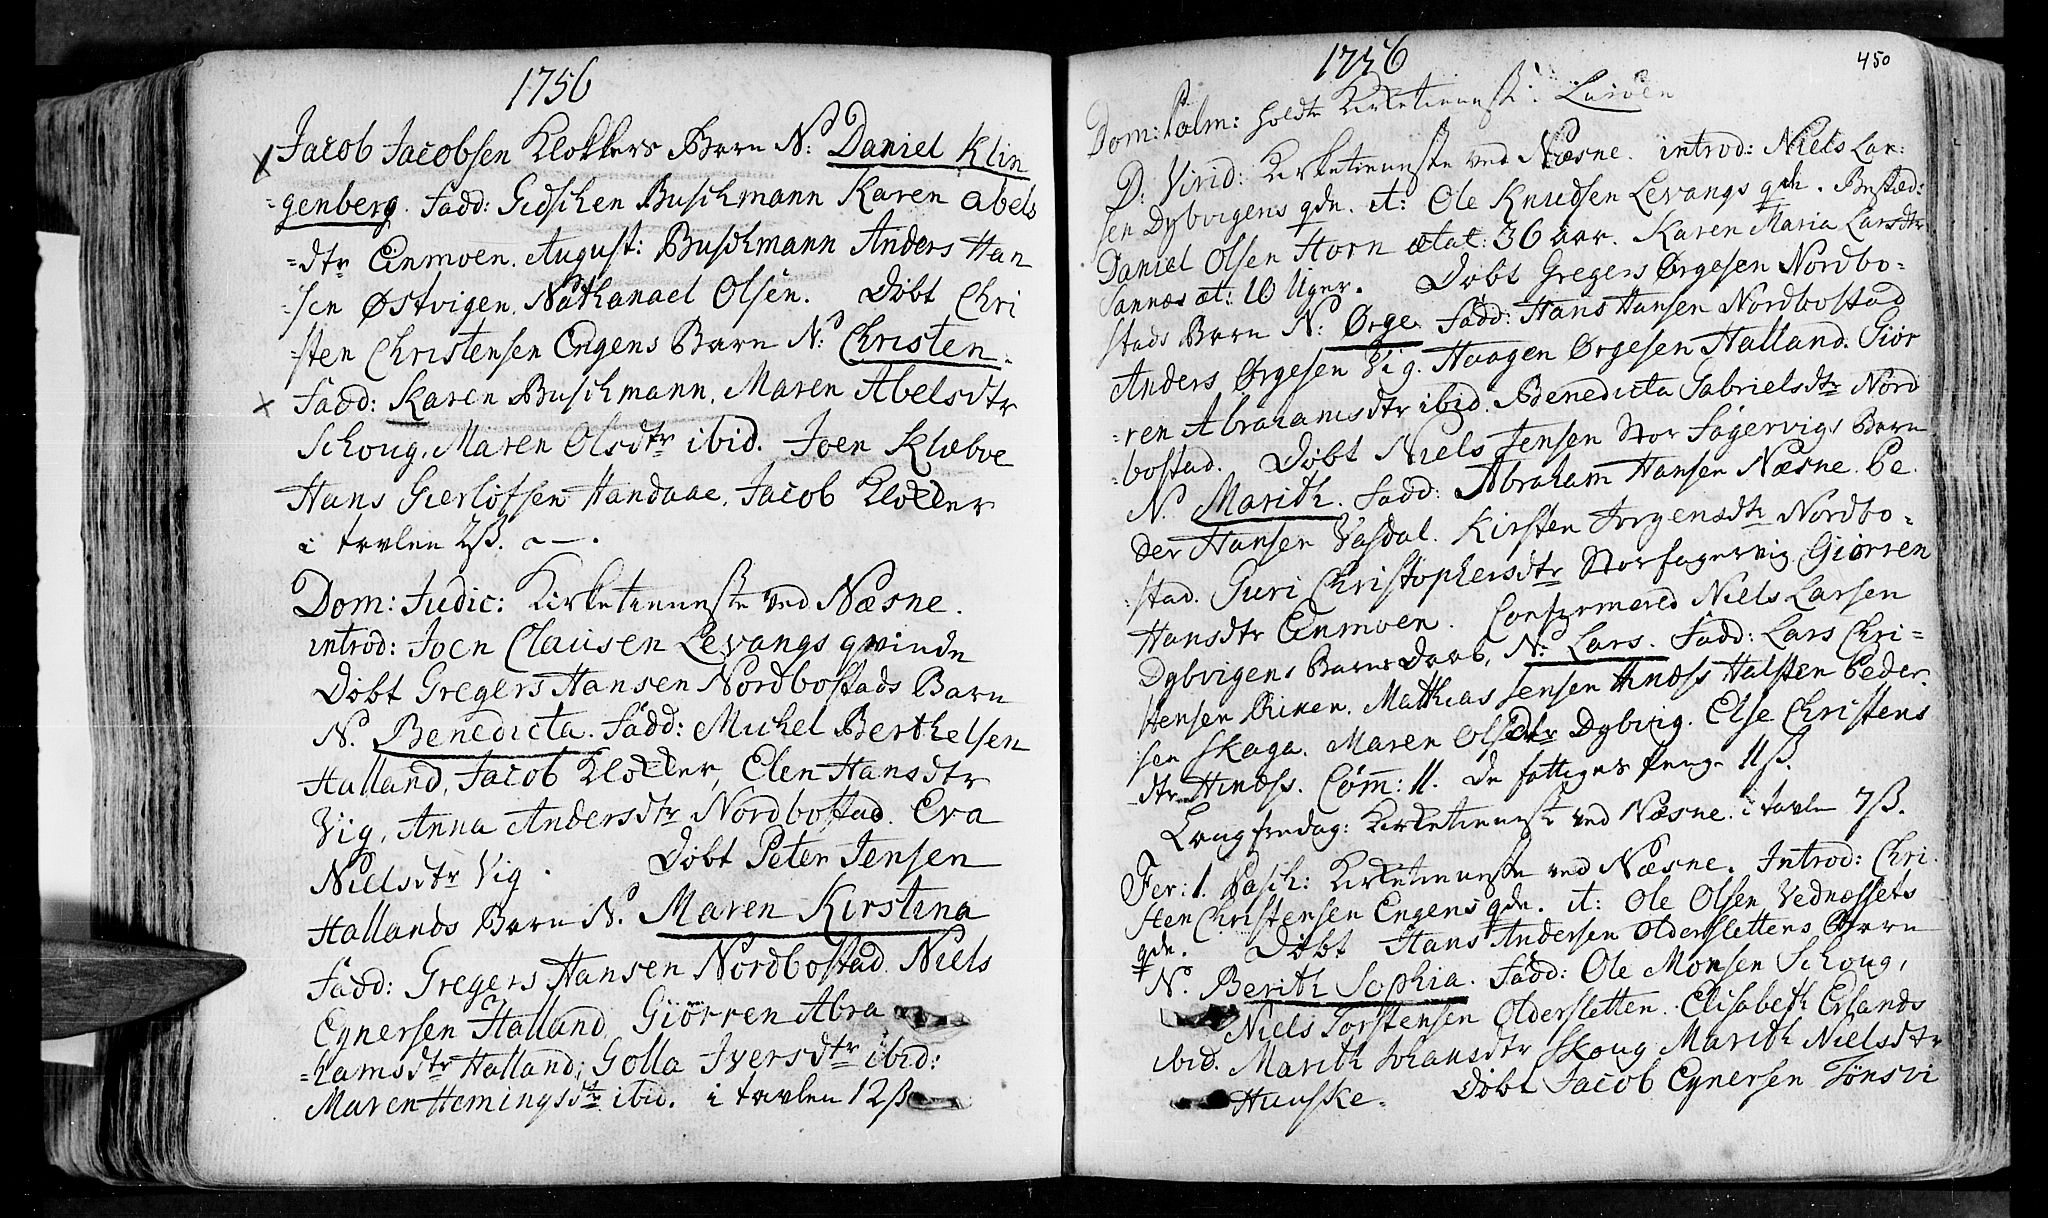 1756
Jacob Jacobsen Klokkers Barn N: Daniel Klin
=genberg. Fadd: Gidschen Buschmann Karen Abels
=dtr Einmoen. August: Buschmann Anders Han
=sen Østvigen. Nathanael Olsen. Døbt Chri
=sten Christensen Engens Barn N: Christen.
Fadd: Karen Buschmann, Maren Abelsdtr
Schoug, Maren Olsdtr ibid. Joen Klæboe
Hans Gierlofsen Handaae, Jacob Klokker
i tavlen 2ß.
Dom: Judic: Kirketienneste ved Næsne.
introd: Joen Clausen Levangs qvinde
Døbt Gregers Hansen Nordbostads Barn
N. Benedicta. Fadd: Michel Berthelsen
Halland, Jacob Klokker, Elen Hansdtr
Vig, Anna Andersdtr Nordbostad. Eva
Nielsdtr Vig. Døbt Peter Jensen
Hallands Barn N. Maren Kirstina
Fadd: Gregers Hansen Nordbostad. Niels
Eynersen Halland, Giørren Abra
=hamsdtr Halland; Golla Iversdtr ibid:
Maren Hemingsdtr ibid. i tavlen 12ß
1756
450
Dom: Palm: holdt Kirketienneste i Lurøen
D: Virid: Kirketienneste ved Næsne. introd: Niels Lar:
sen Dybvigens qde. it: Ole Knudsen Levangs qde. Bested:
Daniel Olsen Horn ætat: 36 aar. Karen Maria Larsdtr
Sannæs æt: 10 Uger. Døbt Gregers Ørgesen Nordbo=
stads Barn N: Ørge. Fadd: Hans Hansen Nordbostad
Anders Ørgesen Vig. Haagen Ørgesen Halland. Giør
=ren Abrahamsdtr ibid. Benedicta Gabrielsdtr Nord
=bostad. Døbt Niels Jensen Stor Fagervigs Barn
N. Marith. Fadd: Abraham Hansen Næsne. Pe
der Hansen Vasdal. Kirsten Jørgensdtr Nordbo=
=stad. Guri Christophersdtr Storfagervig Giørren
Hansdtr Einmoen. Confirmered Niels Larsen
Dybvigens Barns Daab, N: Lars. Fadd: Lars Chri=
stensen. Mathias Jensen Hindss Halsten Peder
sen Skaga. Maren Olsdtr Dybvig. Else Christens
=dtr Hindss. Com: 11. De fattiges Penge 11ß.
Langfredag: Kirketienneste ved Næsne. i tavlen 7ß.
Fer: 1. Pasch: Kirketienneste ved Næsne. Introd: Chri
sten Christensen Engens qde. it: Ole Olsen Vednæssets
qde. Døbt Hans Andersen Olderslettens Barn
N. Berith Sophia. Fadd: Ole Monsen Schoug,
Niels Torstensen Oldersletten. Elisabeth Erlands
ibid. Marith Johansdtr Skoug Marith Nielsdtr
Huuske. Døbt Jacob Eynersen Tønsvi